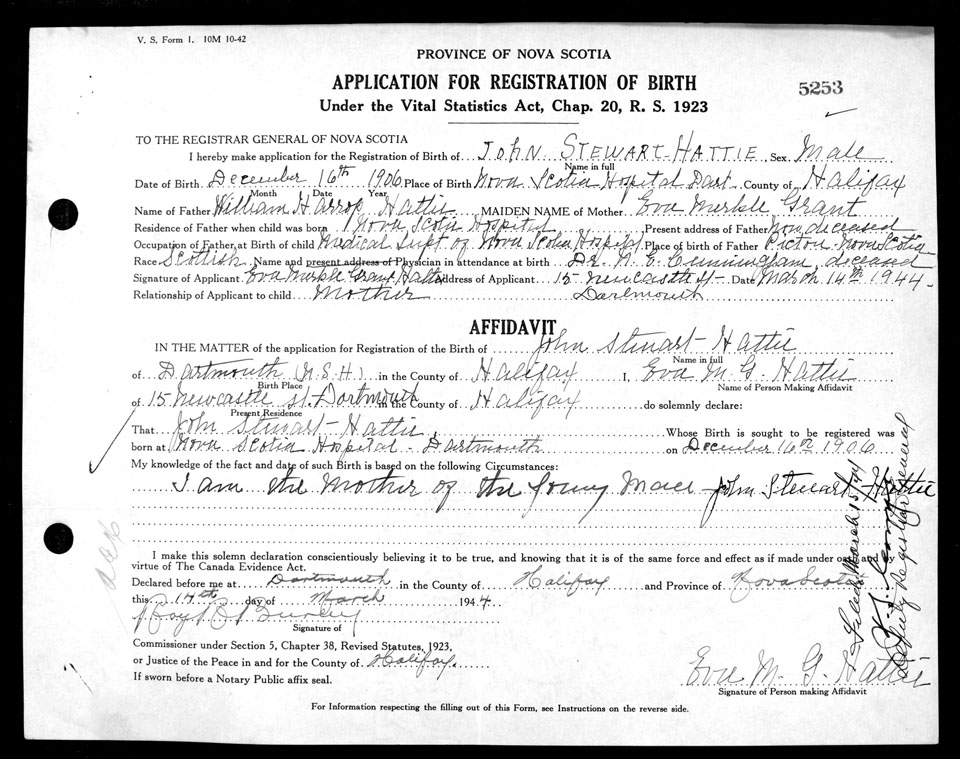 V. S. Form 1. 10M 10-42
PROVINCE OF NOVA SCOTIA
APPLICATION FOR REGISTRATION OF BIRTH
5253
Under the Vital Statistics Act, Chap. 20, R. S. 1923
TO THE REGISTRAR GENERAL OF NOVA SCOTIA
I hereby make application for the Registration of Birth of JOHN STEWART HATTIE, Sex Male
Name in full
Date of Birth December 16th 1906 Place of Birth Nova Scotia Hospital Dart County of Halifax
Month Date Year
Name of Father William Harrop Hattie MAIDEN NAME of Mother Eva Merkle Grant
Residence of Father when child was born Nova Scotia Hospital Present address of Father Now deceased
Occupation of Father at Birth of child Medical Supt of Nova Scotia Hospital Place of Birth of Father Pictou Nova Scotia
Race Scottish Name and present address of Physician in attendance at birth Dr. Cunningham, deceased
Signature of Applicant Eva Merkle Grant Hattie Address of Applicant 15 Newcastle St Date March 14th 1944
Relationship of Applicant to child Mother Dartmouth
AFFIDAVIT
IN THE MATTER of the application for Registration of the Birth of John Stewart Hattie
Name in full
of Dartmouth (N.S.H.) in the County of Halifax I, Eva M. G. Hattie
Birth Place Name of Person Making Affidavit
of 15 Newcastle St. Dartmouth in the County of Halifax do solemnly declare:
Present Residence
That John Stewart Hattie Whose Birth is sought to be registered was
born at Nova Scotia Hospital - Dartmouth on December 16th 1906
My knowledge of the fact and date of such Birth is based on the following Circumstances:
I am the Mother of the young man John Stewart Hattie
I make this solemn declaration conscientiously believing it to be true, and knowing that it is of the same force and effect as if made under oath by
virtue of The Canada Evidence Act.
Declared before me at Dartmouth in the County of Halifax and Province of Nova Scotia
this 14th day of March 1944
Signature of
Commissioner under Section 5, Chapter 38, Revised Statutes, 1923,
or Justice of the Peace in and for the County of Halifax.
If sworn before a Notary Public affix seal.
Eva M. G. Hattie
Signature of Person making Affidavit
For Information respecting the filling out of this Form, see Instructions on the reverse side.
Filed March 15/44
Deputy Registrar General